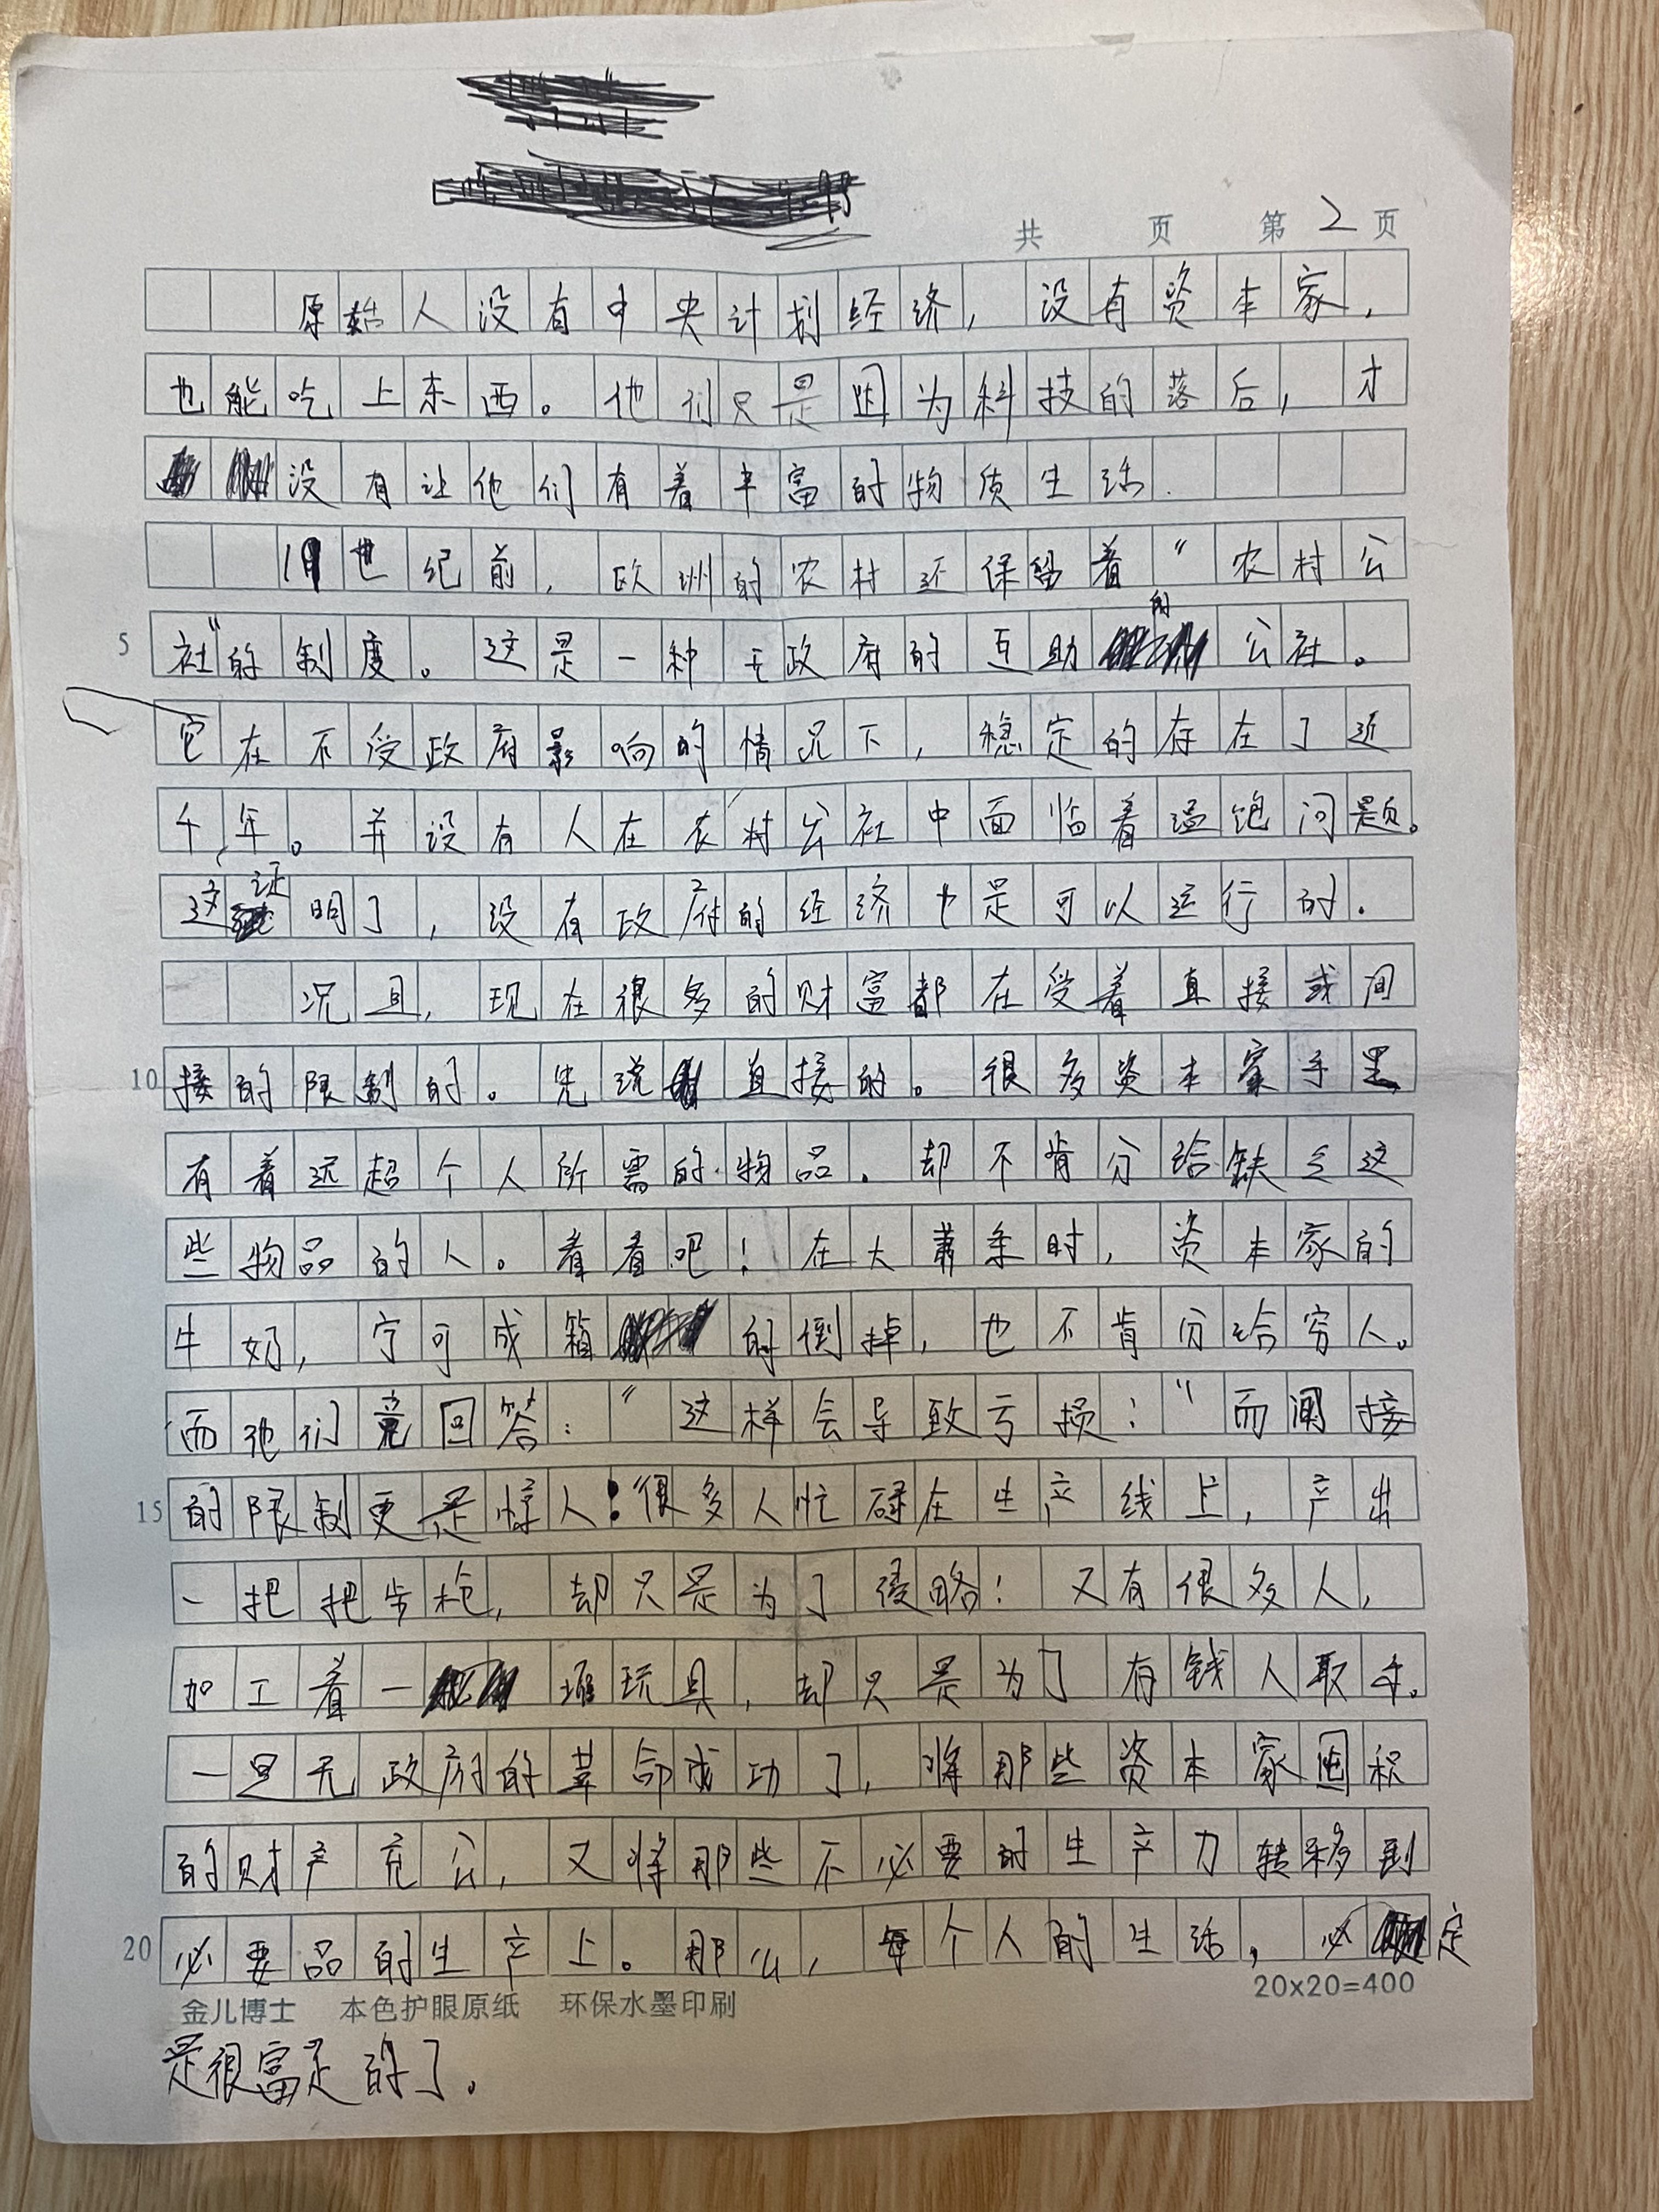 共 页 第2页
原始人没有中央计划经济，没有资本家，
也能吃上东西。他们只是因为科技的落后，才
没有让他们有着丰富的物质生活.
世纪前，欧洲的农村还保留着“农村公
5 社”的制度。这是一种无政府的互助的公社。
它在不受政府影响的情况下，稳定的存在了近
千年。并没有人在农村公社中面临着温饱问题。
这证明了，没有政府的经济也是可以运行的.
况且，现在很多的财富都在受着直接或间
10 接的限制的。先说直接的。很多资本家手里
有着远超个人所需的物品.却不肯分给缺乏这
些物品的人。看看吧！在大萧条时，资本家的
牛奶，宁可成箱的倒掉，也不肯分给穷人。
而他们竟回答：“这样会导致亏损！”而间接
15 的限制更是惊人！很多人忙碌在生产线上，产出
一把把步枪，却只是为了侵略！又有很多人，
加工着一堆玩具，却只是为了有钱人取乐。
一旦无政府的革命成功了，将那些资本家囤积
的财产充公，又将那些不必要的生产力转移到
20 必要品的生产上。那么，每个人的生活，必定
20x20=400
金儿博士 本色护眼原纸 环保水墨印刷
是很富足的了。